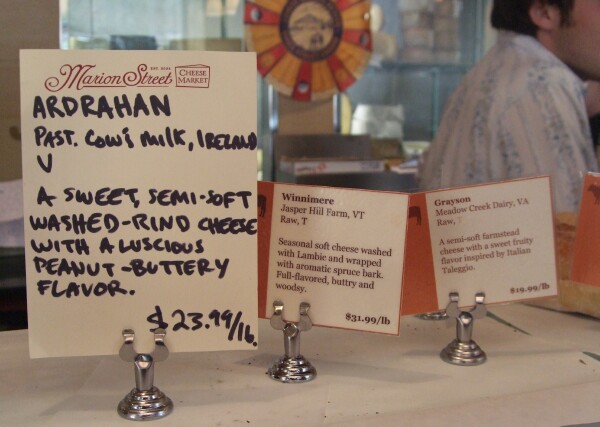 Marion Street CHEESE MARKET
ARDRAHAN
PAST. COW'S MILK, IRELAND
V
A SWEET, SEMI-SOFT
WASHED-RIND CHEESE
WITH A LUSCIOUS
PEANUT-BUTTERY
FLAVOR.
$23.99/lb.
Winnimere
Jasper Hill Farm, VT
Raw, T
Seasonal soft cheese washed
with Lambic and wrapped
with aromatic spruce bark.
Full-flavored, buttry and
woodsy.
$31.99/lb
Grayson
Meadow Creek Dairy, VA
Raw,
A semi-soft farmstead
cheese with a sweet fruity
flavor inspired by Italian
Taleggio.
$19.99/lb